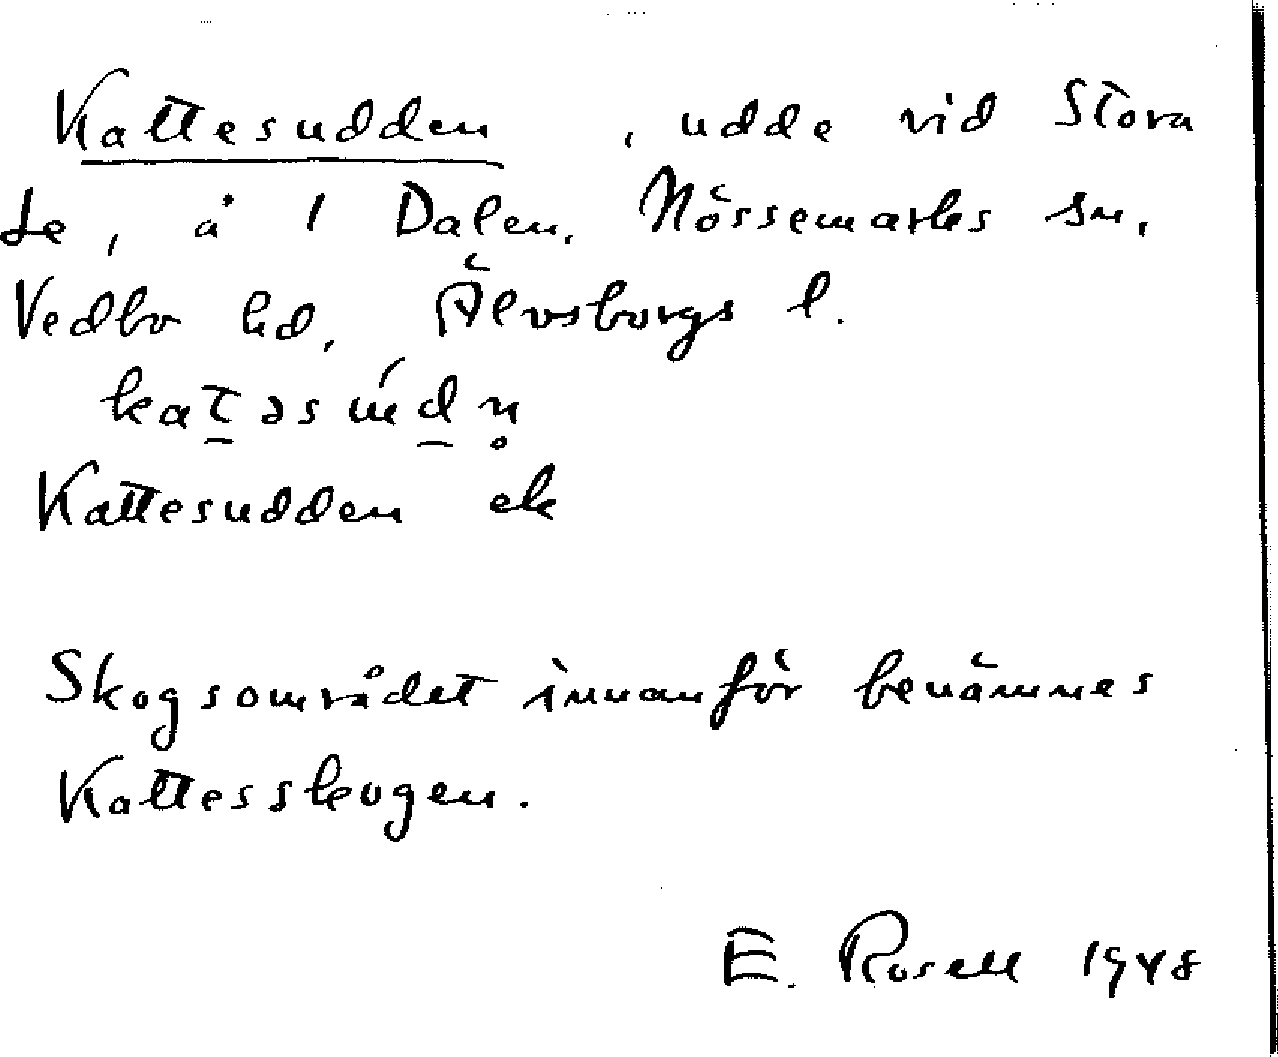 Kattesudden , udde vid Stora
Le, å 1 Dalen, Nössemarks sn,
Vedbo hd, Älvsborgs l.
Kattesudden ek
Skogsområdet innanför benämnes
Kattesskogen.
E. Rosell 1948